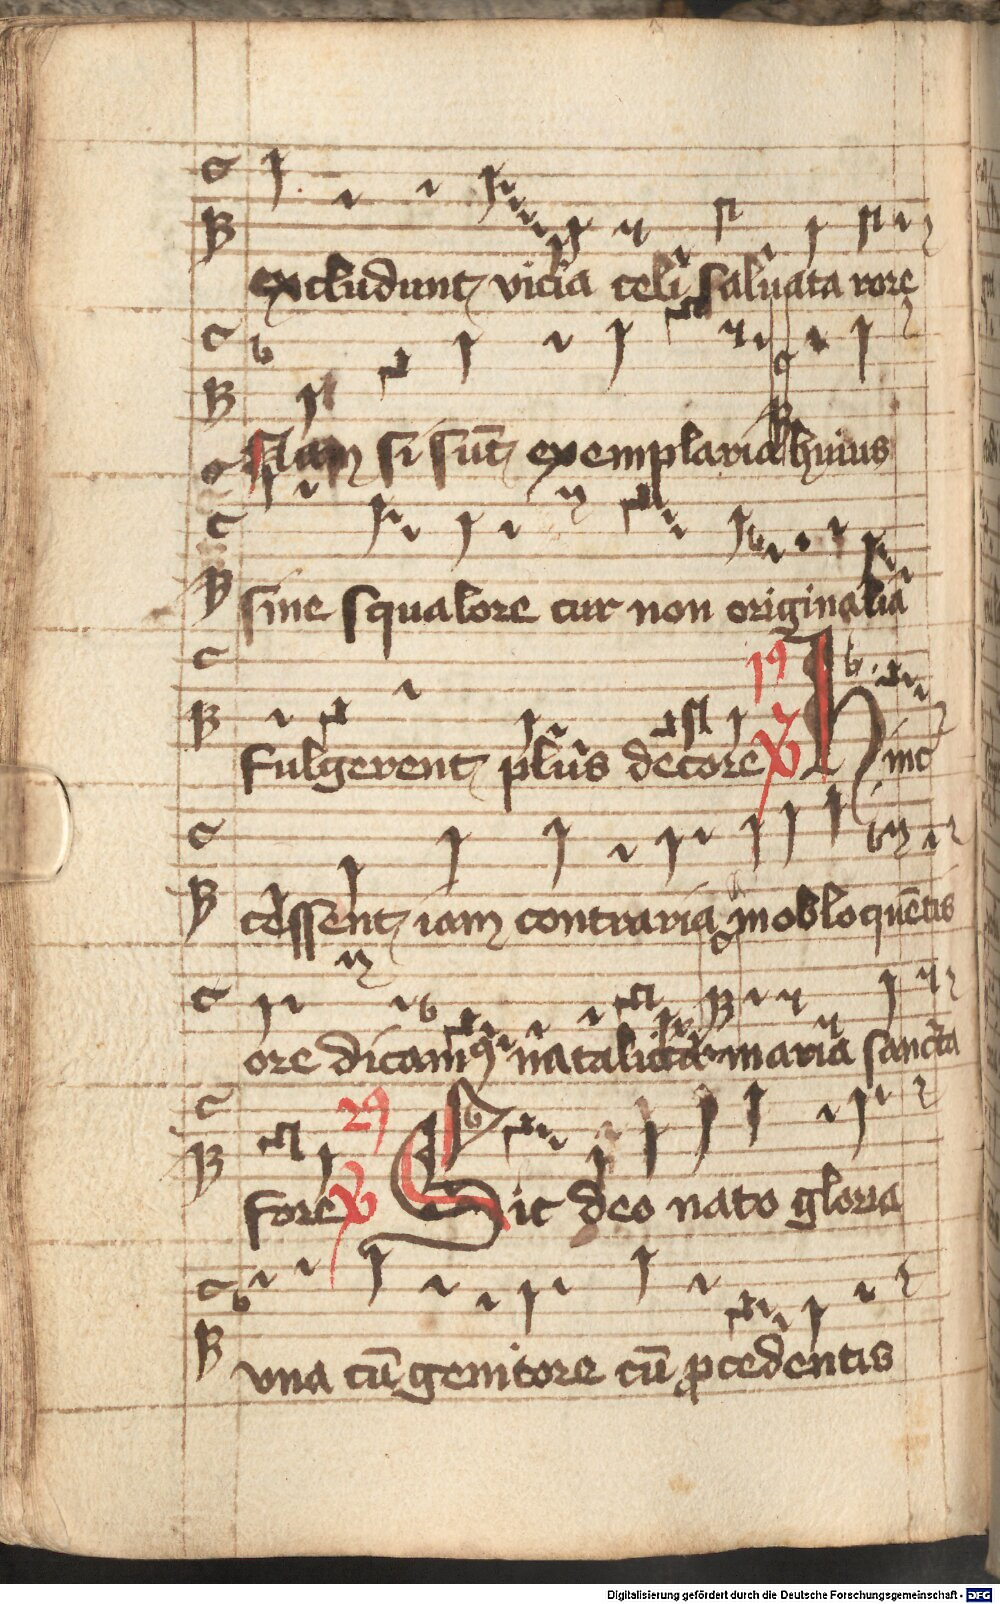 excludunt vicia celi saluata rore
Nam si sūt exemplaria huius
sine squalore cur non originalia
19
fulgerent plus decore ꝟ Hinc
cessent iam contraria in obloquētis
ore dicamꝰ natalicia maria sancta
29
fore ꝟ Sic deo nato gloria
vna cū genitore cū ꝓcedentis
Digitalisierung gefördert durch die Deutsche Forschungsgemeinschaft - DFG